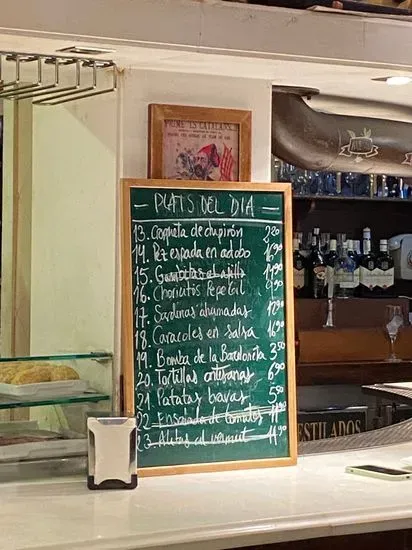 PRIME'LS CATALANS
— PLATS DEL DIA —
13. Croqueta de chipirón 2,20
14. Pez espada en adobo 16,90
15. Gambitas al ajillo 14,90
16. Choricitos Pepe Gil 9,50
17. Sardinas ahumadas 12,90
18. Caracoles en salsa 16,90
19. Bomba de la Barceloneta 3,50
20. Tortillas artesanas 6,90
21. Patatas bravas 5,50
22. Ensalada de tomates 11,90
23. Alitas al vermut 11,90
ESTILADOS